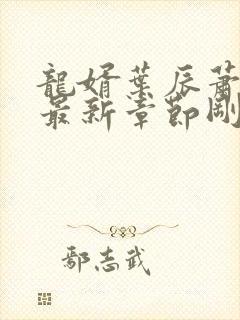 龍婿葉辰蕭
最新章節剛
鄢志武